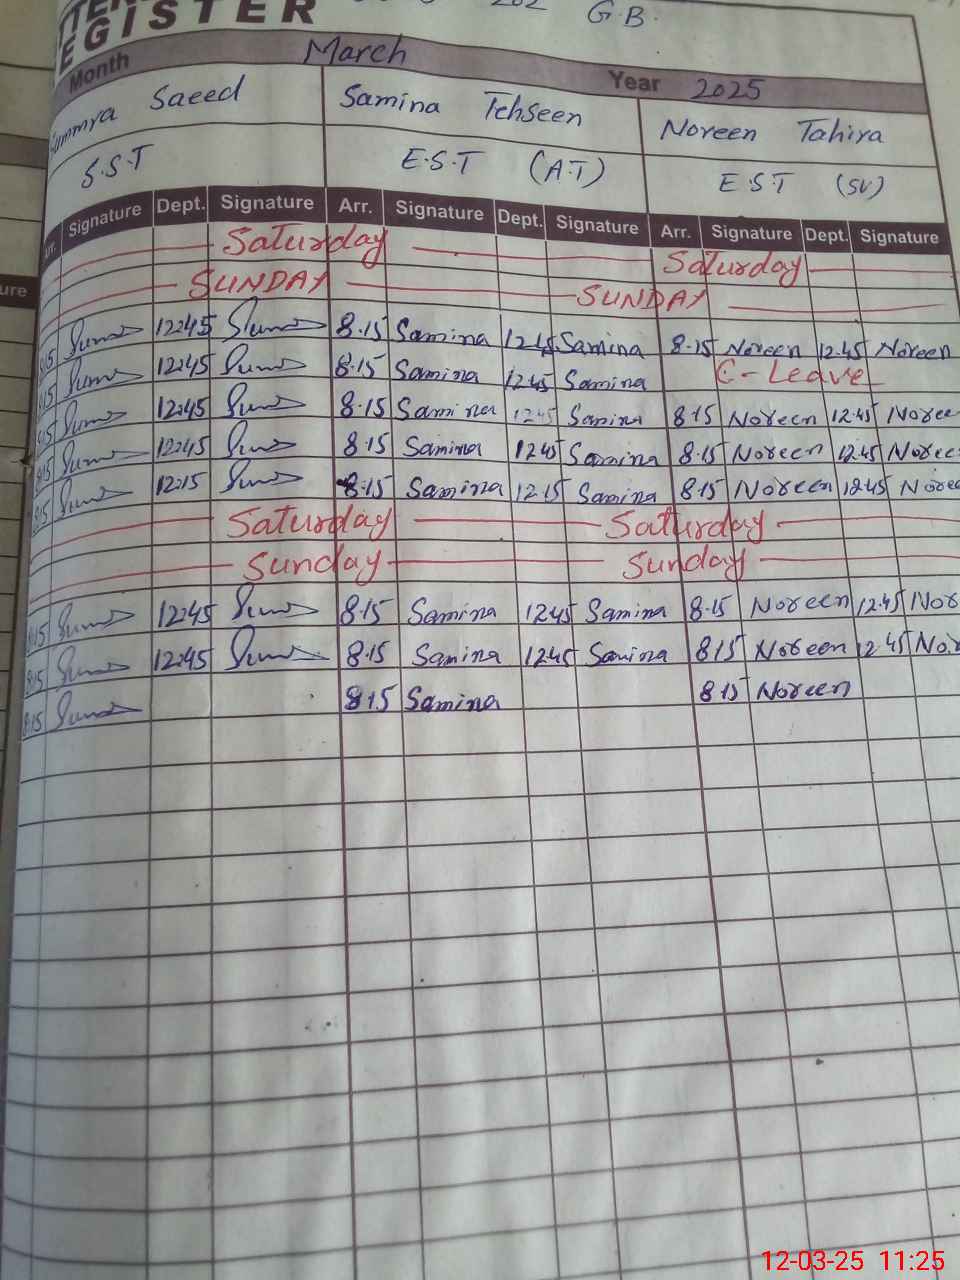 REGISTER
G.B.
Month March Year 2025
Saeed Samina Tehseen Noreen Tahira
S.S.T E.S.T (A.T) E.S.T (SV)
Signature Dept. Signature Arr. Signature Dept. Signature Arr. Signature Dept. Signature
Saturday Saturday
SUNDAY SUNDAY
12:45 8.15 Samina 12.45 Samina 8.15 Noreen 12.45 Noreen
12:45 8.15 Samina 12.45 Samina C-Leave
12:45 8.15 Samina 12.45 Samina 8.15 Noreen 12.45 Noree
8.15 12:45 8.15 Samina 12.45 Samina 8.15 Noreen 12.45 Noree
8.15 12:15 8.15 Samina 12.15 Samina 8.15 Noreen 12.45 Noree
Saturday Saturday
Sunday Sunday
8.15 12:45 8.15 Samina 12.45 Samina 8.15 Noreen 12.45 Nor
8.15 12:45 8.15 Samina 12.45 Samina 8.15 Noreen 12.45 Nor
8.15 8.15 Samina 8.15 Noreen
12-03-25 11:25